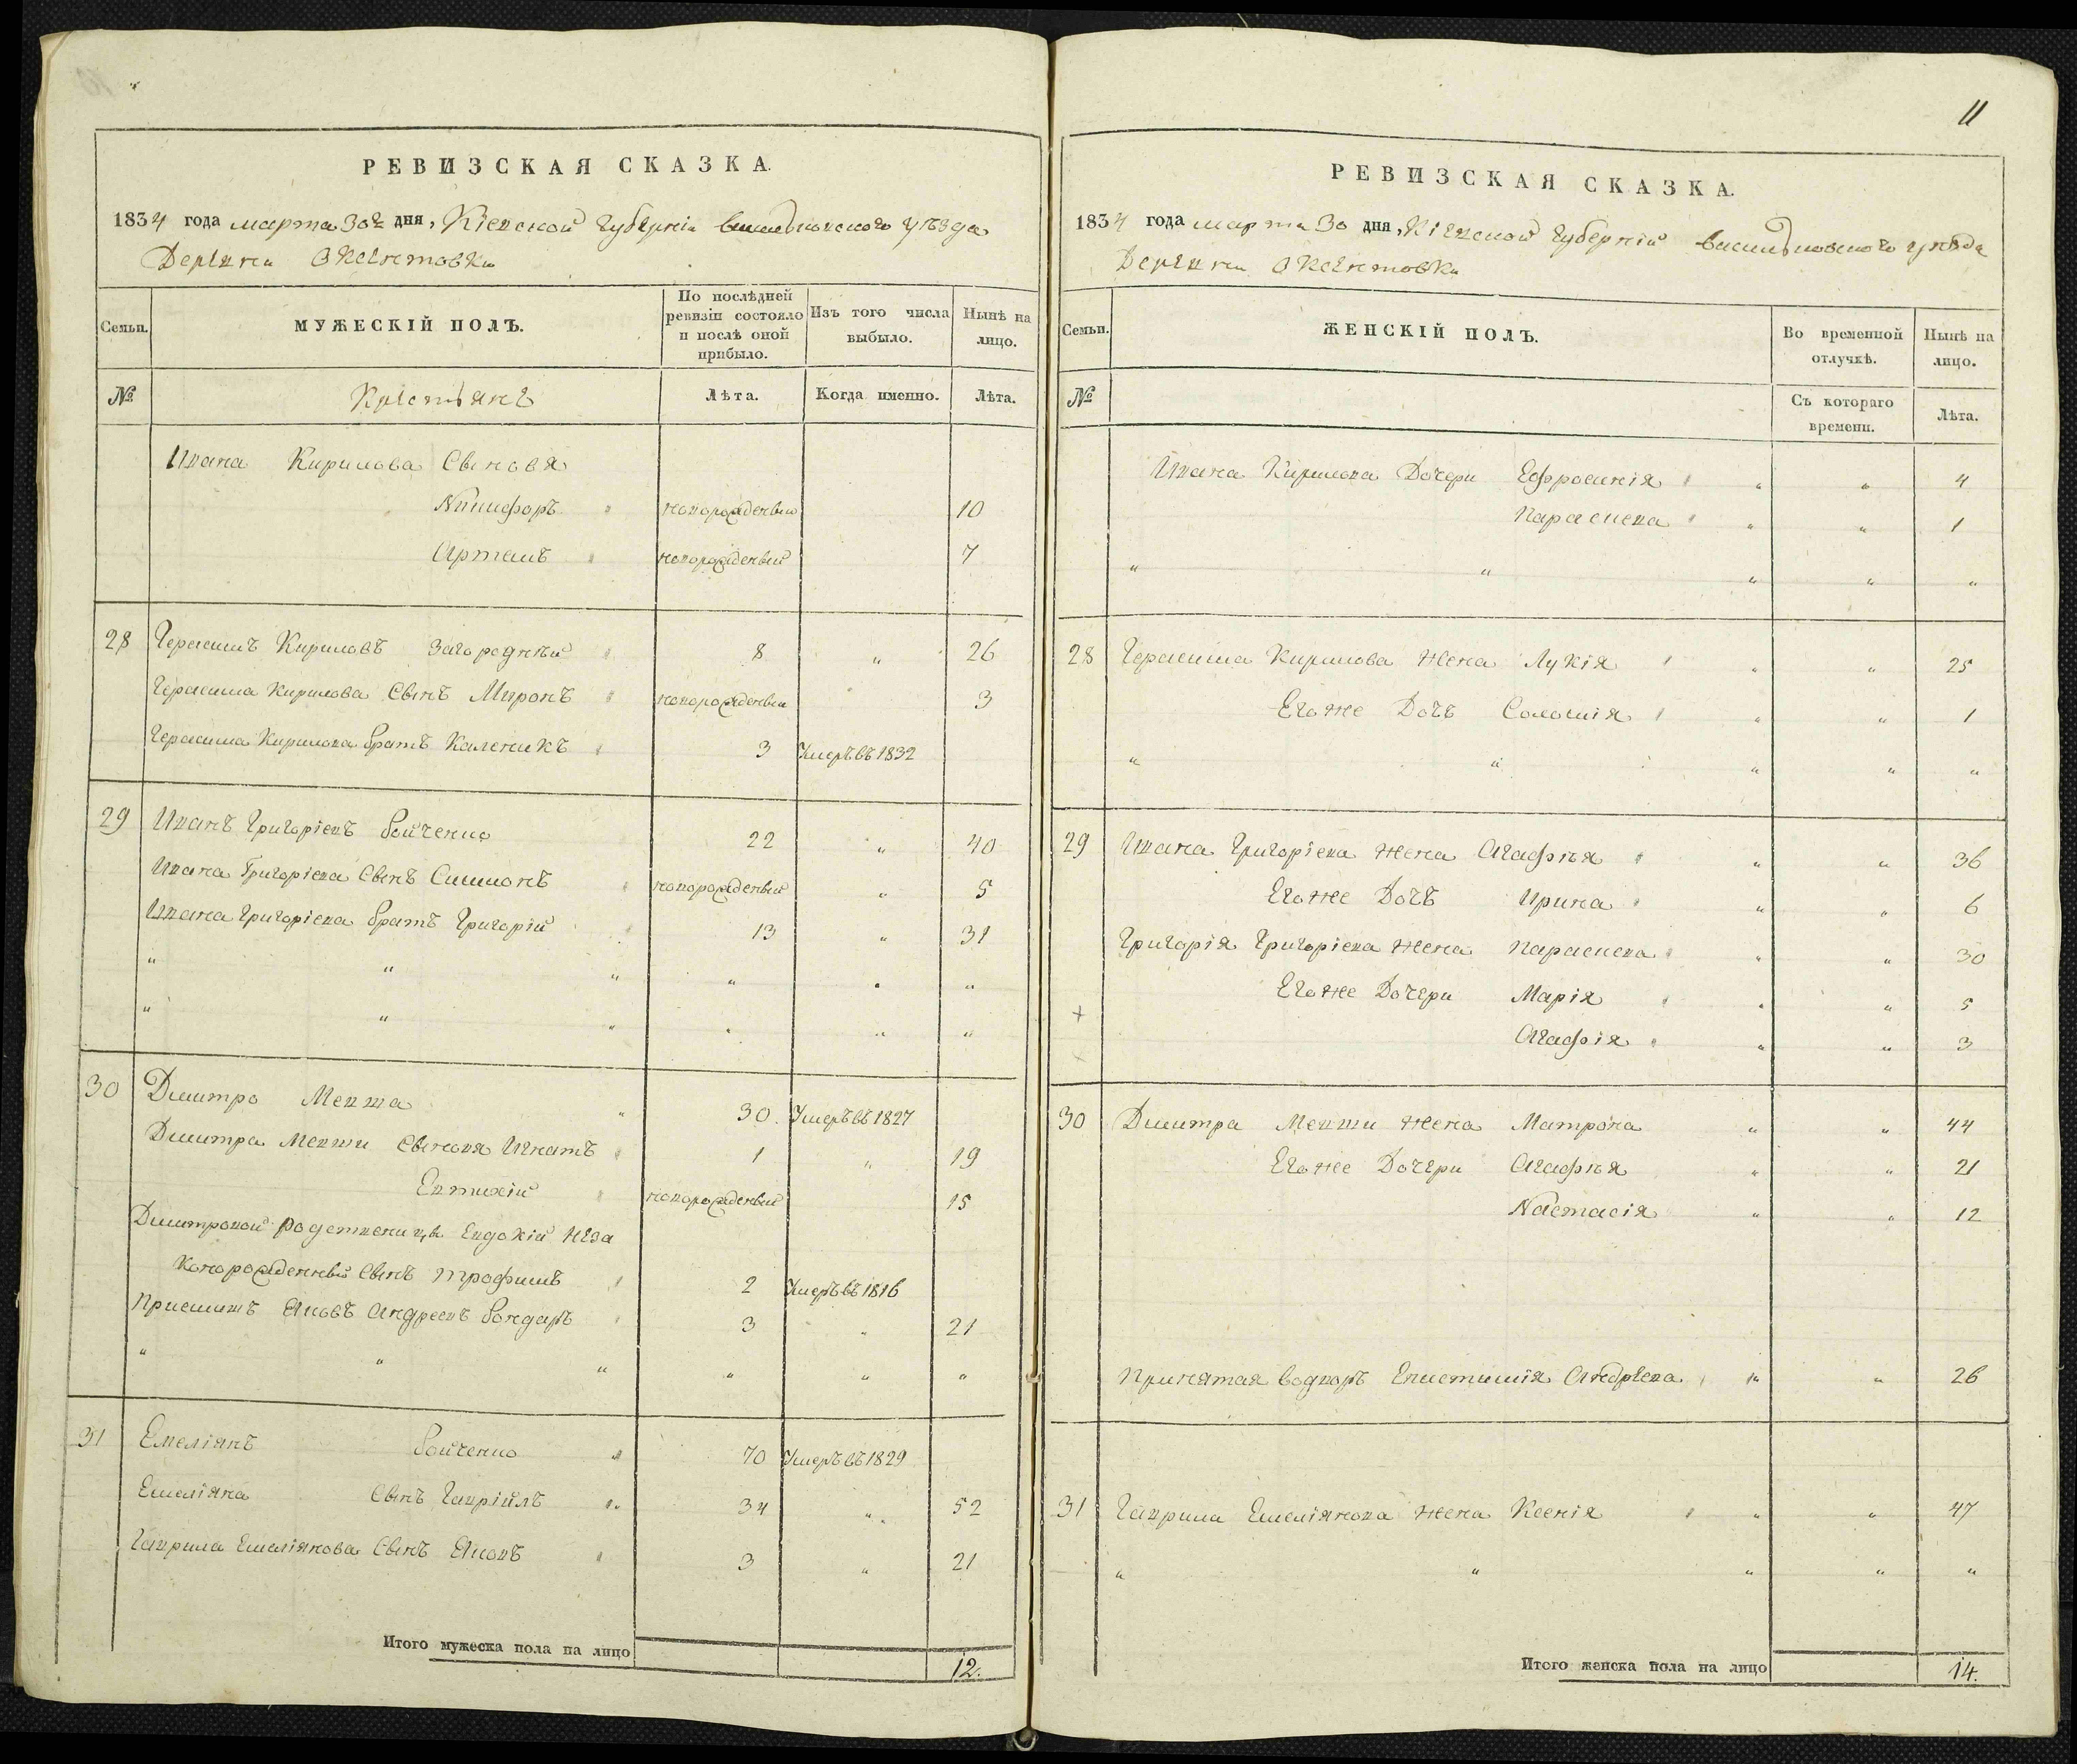 11
РЕВИЗСКАЯ СКАЗКА.
1834 года марта 30го дня, Кіевской Губерніи васильковскаго уѣзда
Деревни
Семьи.
МУЖЕСКІЙ ПОЛЪ.
По послѣдней ревизіи состояло и послѣ оной прибыло.
Изъ того числа выбыло.
Нынѣ на лицо.
№
Крестьяне
Лѣта.
Когда именно.
Лѣта.
Ивана Кирилова Сыновя
Никифоръ новорожденный 10
Артемъ новорожденный 7
28 Герасимъ Кириловъ Загородній 8 „ 26
Герасима Кирилова Сынъ Миронъ новорожденный „ 3
Герасима Кирилова братъ Каленикъ 3 Умеръ въ 1832
29 Иванъ Григоріевъ Бойченко 22 „ 40
Ивана Григоріева Сынъ Симионъ новорожденный „ 5
Ивана Григоріева братъ Григорій 13 „ 31
„ „ „ „ „ „
„ „ „ „ „ „
30 Дмитро Мевша „ 30. Умеръ въ 1827
Дмитра Мевши Сыновя Игнатъ 1 „ 19
Евтихій новорожденный 15
Дмитровой родственицы Евдокіи Неза
конорожденный Сынъ Трофимъ 2 Умеръ въ 1816
Приемишъ Яковъ Андреевъ Бондарь 3 „ 21
„ „ „ „ „ „
31 Емеліянъ Бойченко „ 70 Умеръ въ 1829
Емеліяна Сынъ Гаврійлъ „ 34 „ 52
Гаврила Емеліянова Сынъ Яковъ „ 3 „ 21
Итого мужеска пола на лицо 12.
РЕВИЗСКАЯ СКАЗКА.
1834 года марта 30 дня, Кіевской Губерніи васильковскаго уѣзда
Деревни
Семьи.
ЖЕНСКІЙ ПОЛЪ.
Во временной отлучкѣ.
Нынѣ на лицо.
№
Съ котораго времени.
Лѣта.
Ивана Кирилова Дочери Ефросинія „ „ 4
Параскева „ „ 1
„ „ „ „ „
28 Герасима Кирилова Жена Лукія „ „ 25
Егоже Дочь Соломія „ „ 1
„ „ „ „ „
29 Ивана Григоріева Жена Агафія „ „ 36
Егоже Дочь Ирина „ „ 6
Григорія Григоріева Жена Параскева „ „ 30
Егоже Дочери Марія „ „ 5
+
Агафія „ „ 3
30 Дмитра Мевши Жена Матрона „ „ 44
Егоже Дочери Агафія „ „ 21
Настасія „ „ 12
Принятая водворъ Епистимія Андрѣева „ „ 26
31 Гаврила Емеліянова Жена Ксенія „ „ 47
„ „ „ „ „
Итого женска пола на лицо 14.